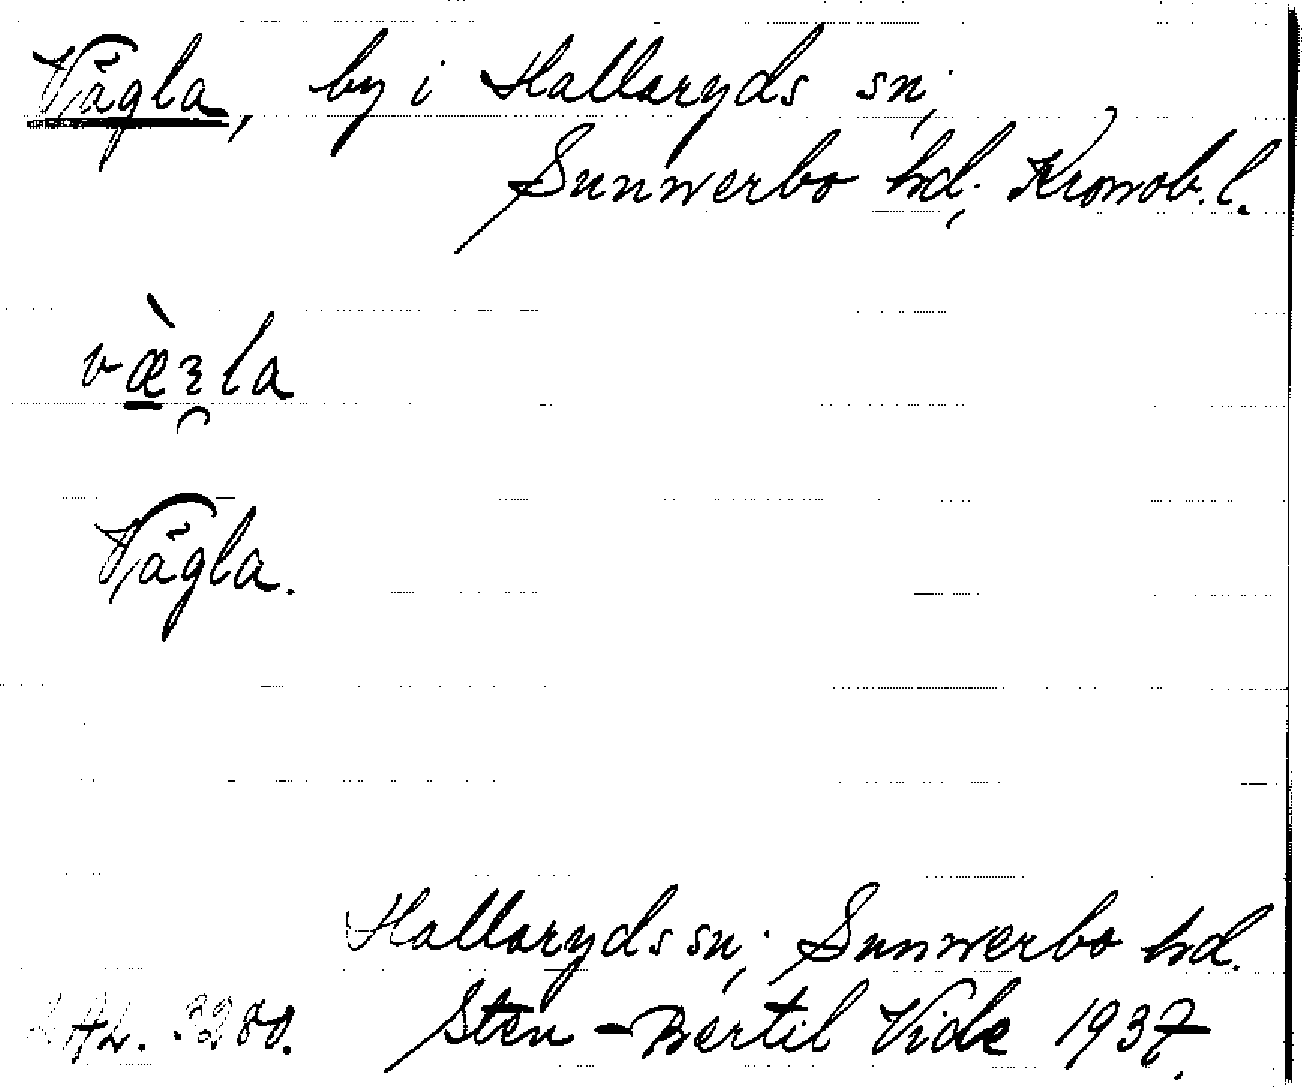 Vågla, by i Hallaryds sn,
Sunnerbo hd, Kronob. l.
Vågla.
Hallaryds sn, Sunnerbo hd.
Sten-Bertil Vide 1937.